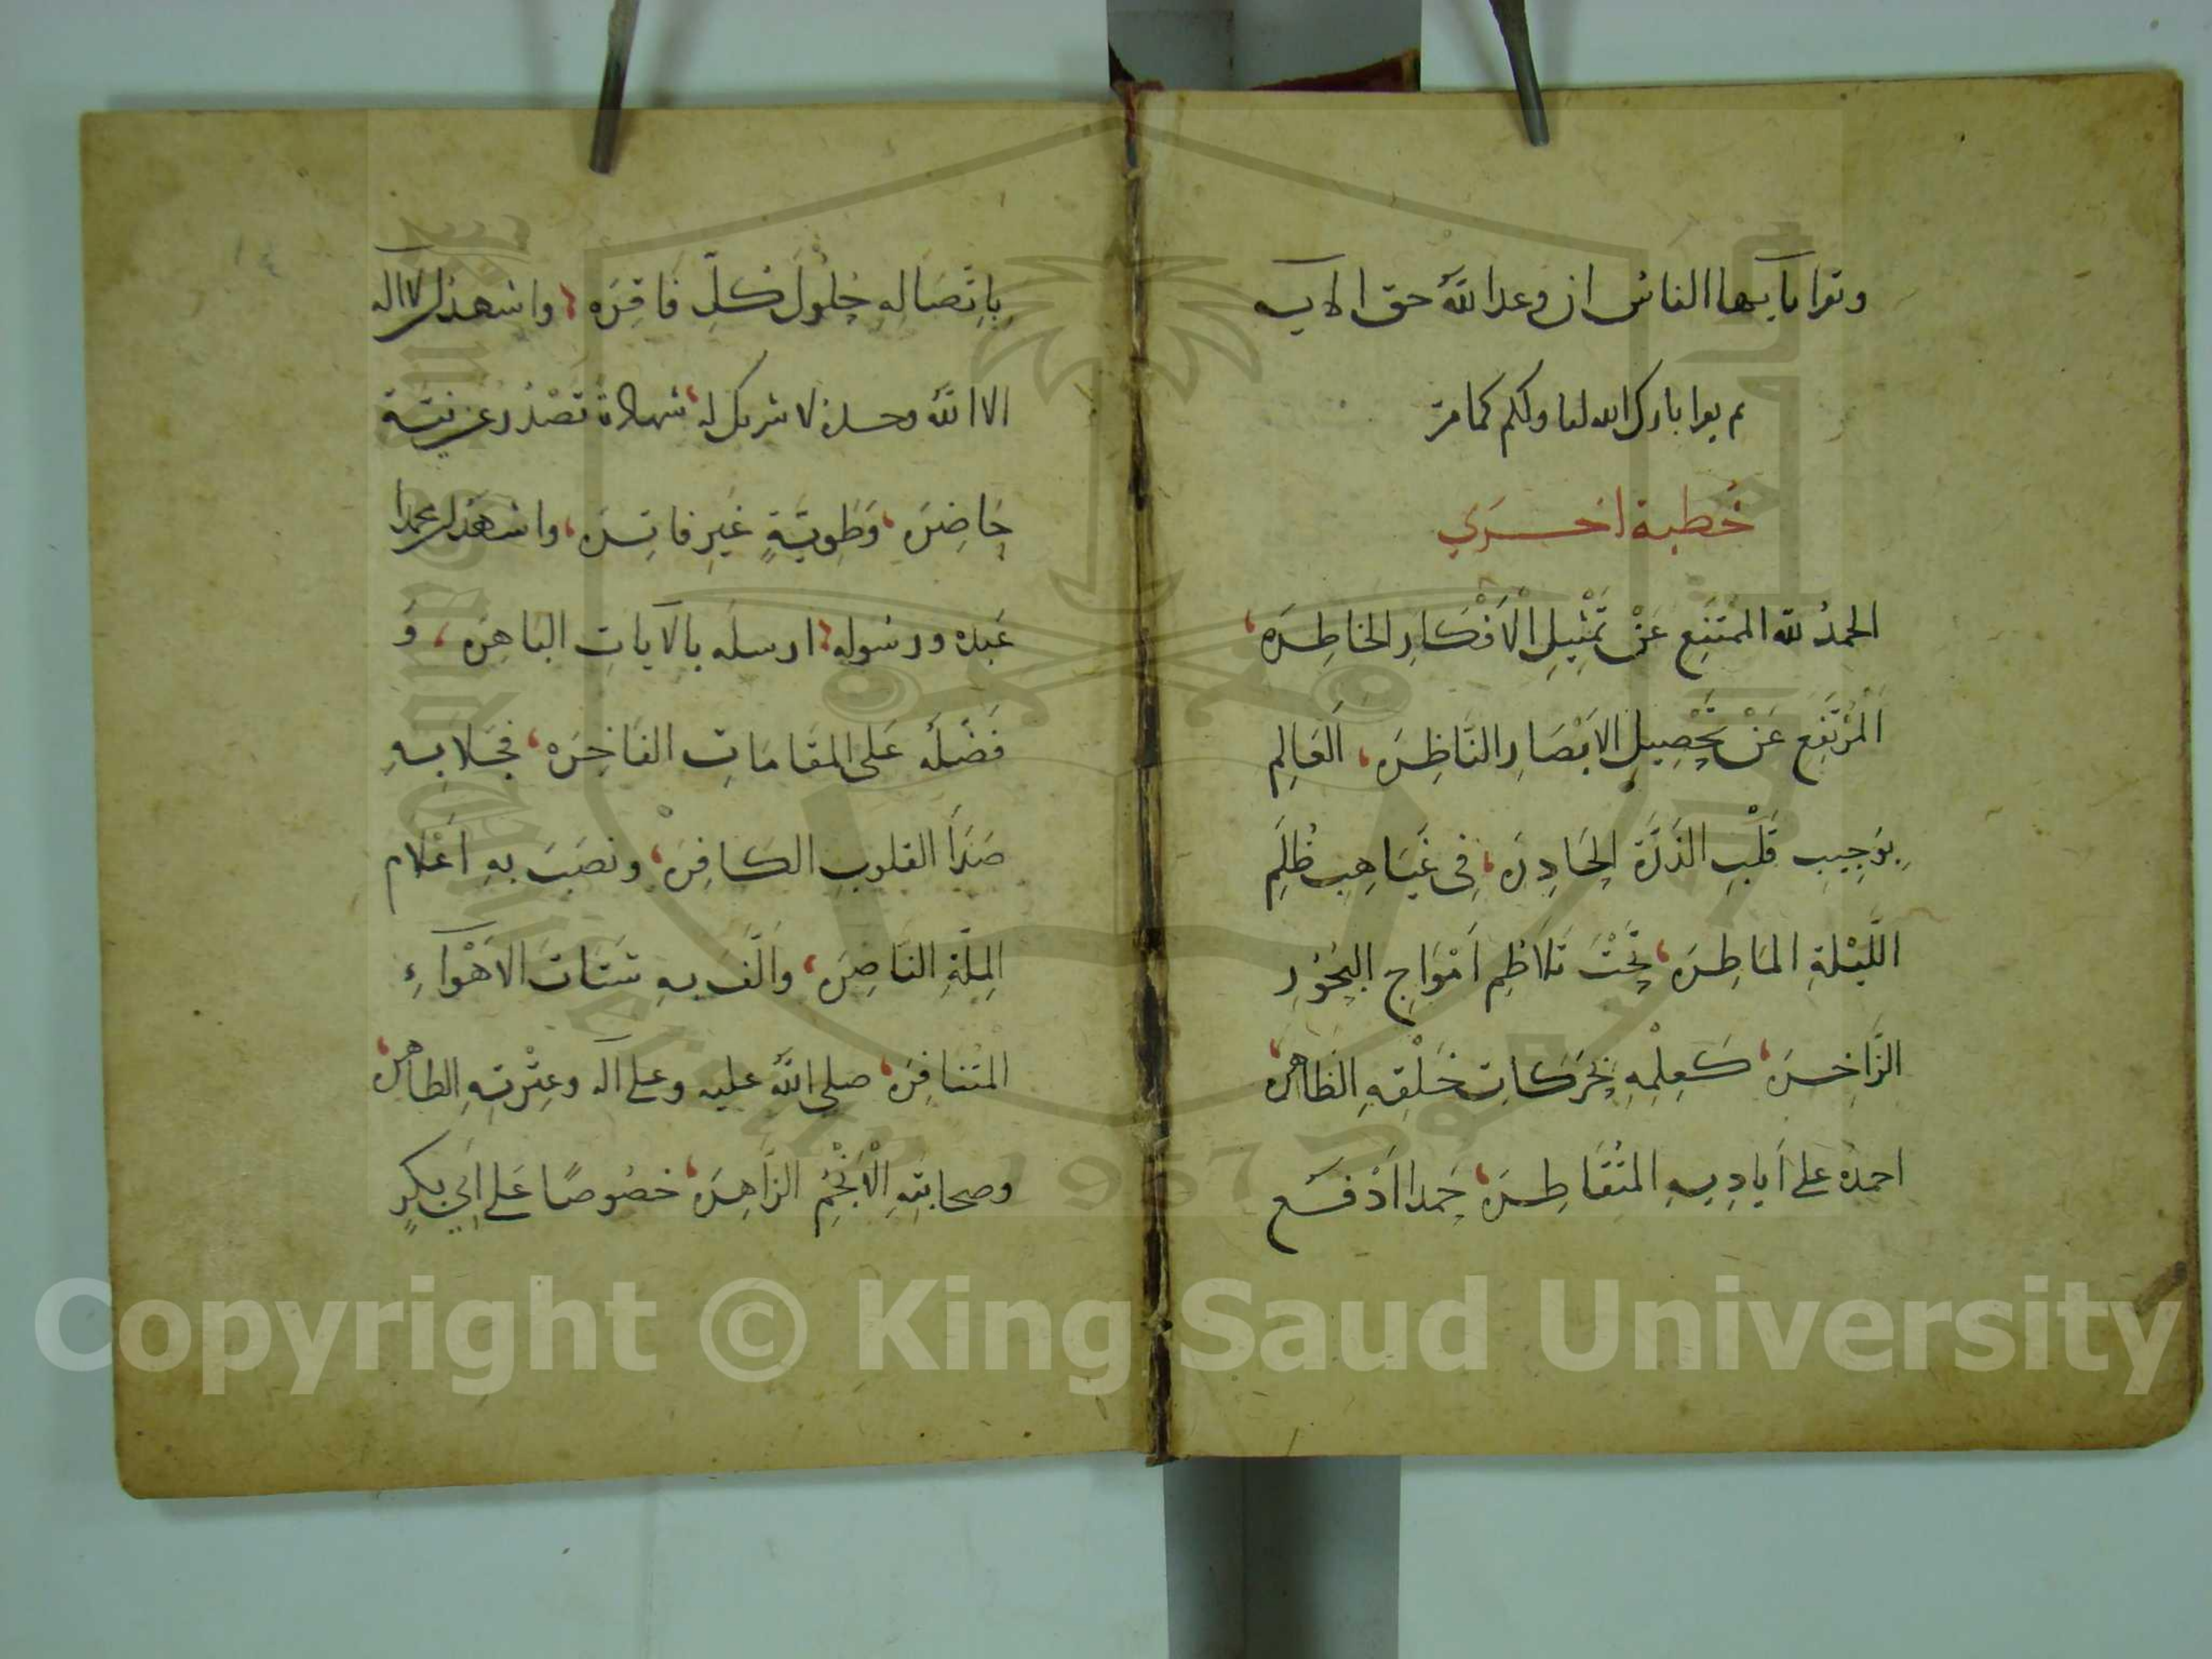 وتقرا يا أيها الناس ان وعد الله حق الاية
ثم يقرا بارك الله لنا ولكم كما مر
خُطبة اخرى
الحمدُ لله الممتَنِعِ عَنْ تَمْثِيلِ الْأَفْكَارِ الخاطِرَه،
اَلْمُرْتَفِعِ عَنْ تَحْصِيلِ الابَصَارِ النَّاظِرَه، اَلعَالِمِ
بِوَجِيبِ قَلْبِ الذَّرَّةِ الحَادِرَه، فِي غَيَاهِبِ ظُلَمِ
اللَّيْلةِ المَاطِرَه، تَحْتَ تَلَاطُمِ اَمْوَاجِ البحُوْرِ
الزَّاخِرَه، كَعِلْمِهِ بحَرَكَاتِ خَلْقِهِ الظَاهره،
احمدُه على أَيادِيهِ المتُقَاطِرَه، حَمدا اَدْفَع
بِاتِّصَالِهِ حُلُوْلَ كلِّ فَاقِرَه، واشهد ان لا اله
الا اللهُ وحده لا شريك له، شهادةً تَصْدُرُ عن نِيَّةٍ
حَاضِرَه، وَطَوِيَّةٍ غَيرِ فاتِرَه، واشهد ان محمدا
عَبده ورسوله، ارسلَه بالآياتِ البَاهِرَه، وَ
فَضَّلَه عَلى المقَامَاتِ الفَاخِرَه، فجَلا بِهِ
صَدَأَ القلوبِ الكَافِرَه، ونصَبَ بِهِ اَعْلام
المِلَّةِ النَّاضِرَه، واَلَّفَ بِهِ شَتَاتَ الاَهْوَآءِ
المتَنَافِرَه، صلى اللهُ عليه وعلى اله وعِتْرتِهِ الطاهره،
وصحابتِهِ الْأَنْجُمِ الزَّاهِرَه، خصُوصًا عَلى اَبي بكرٍ
١٤
Copyright © King Saud University
1957